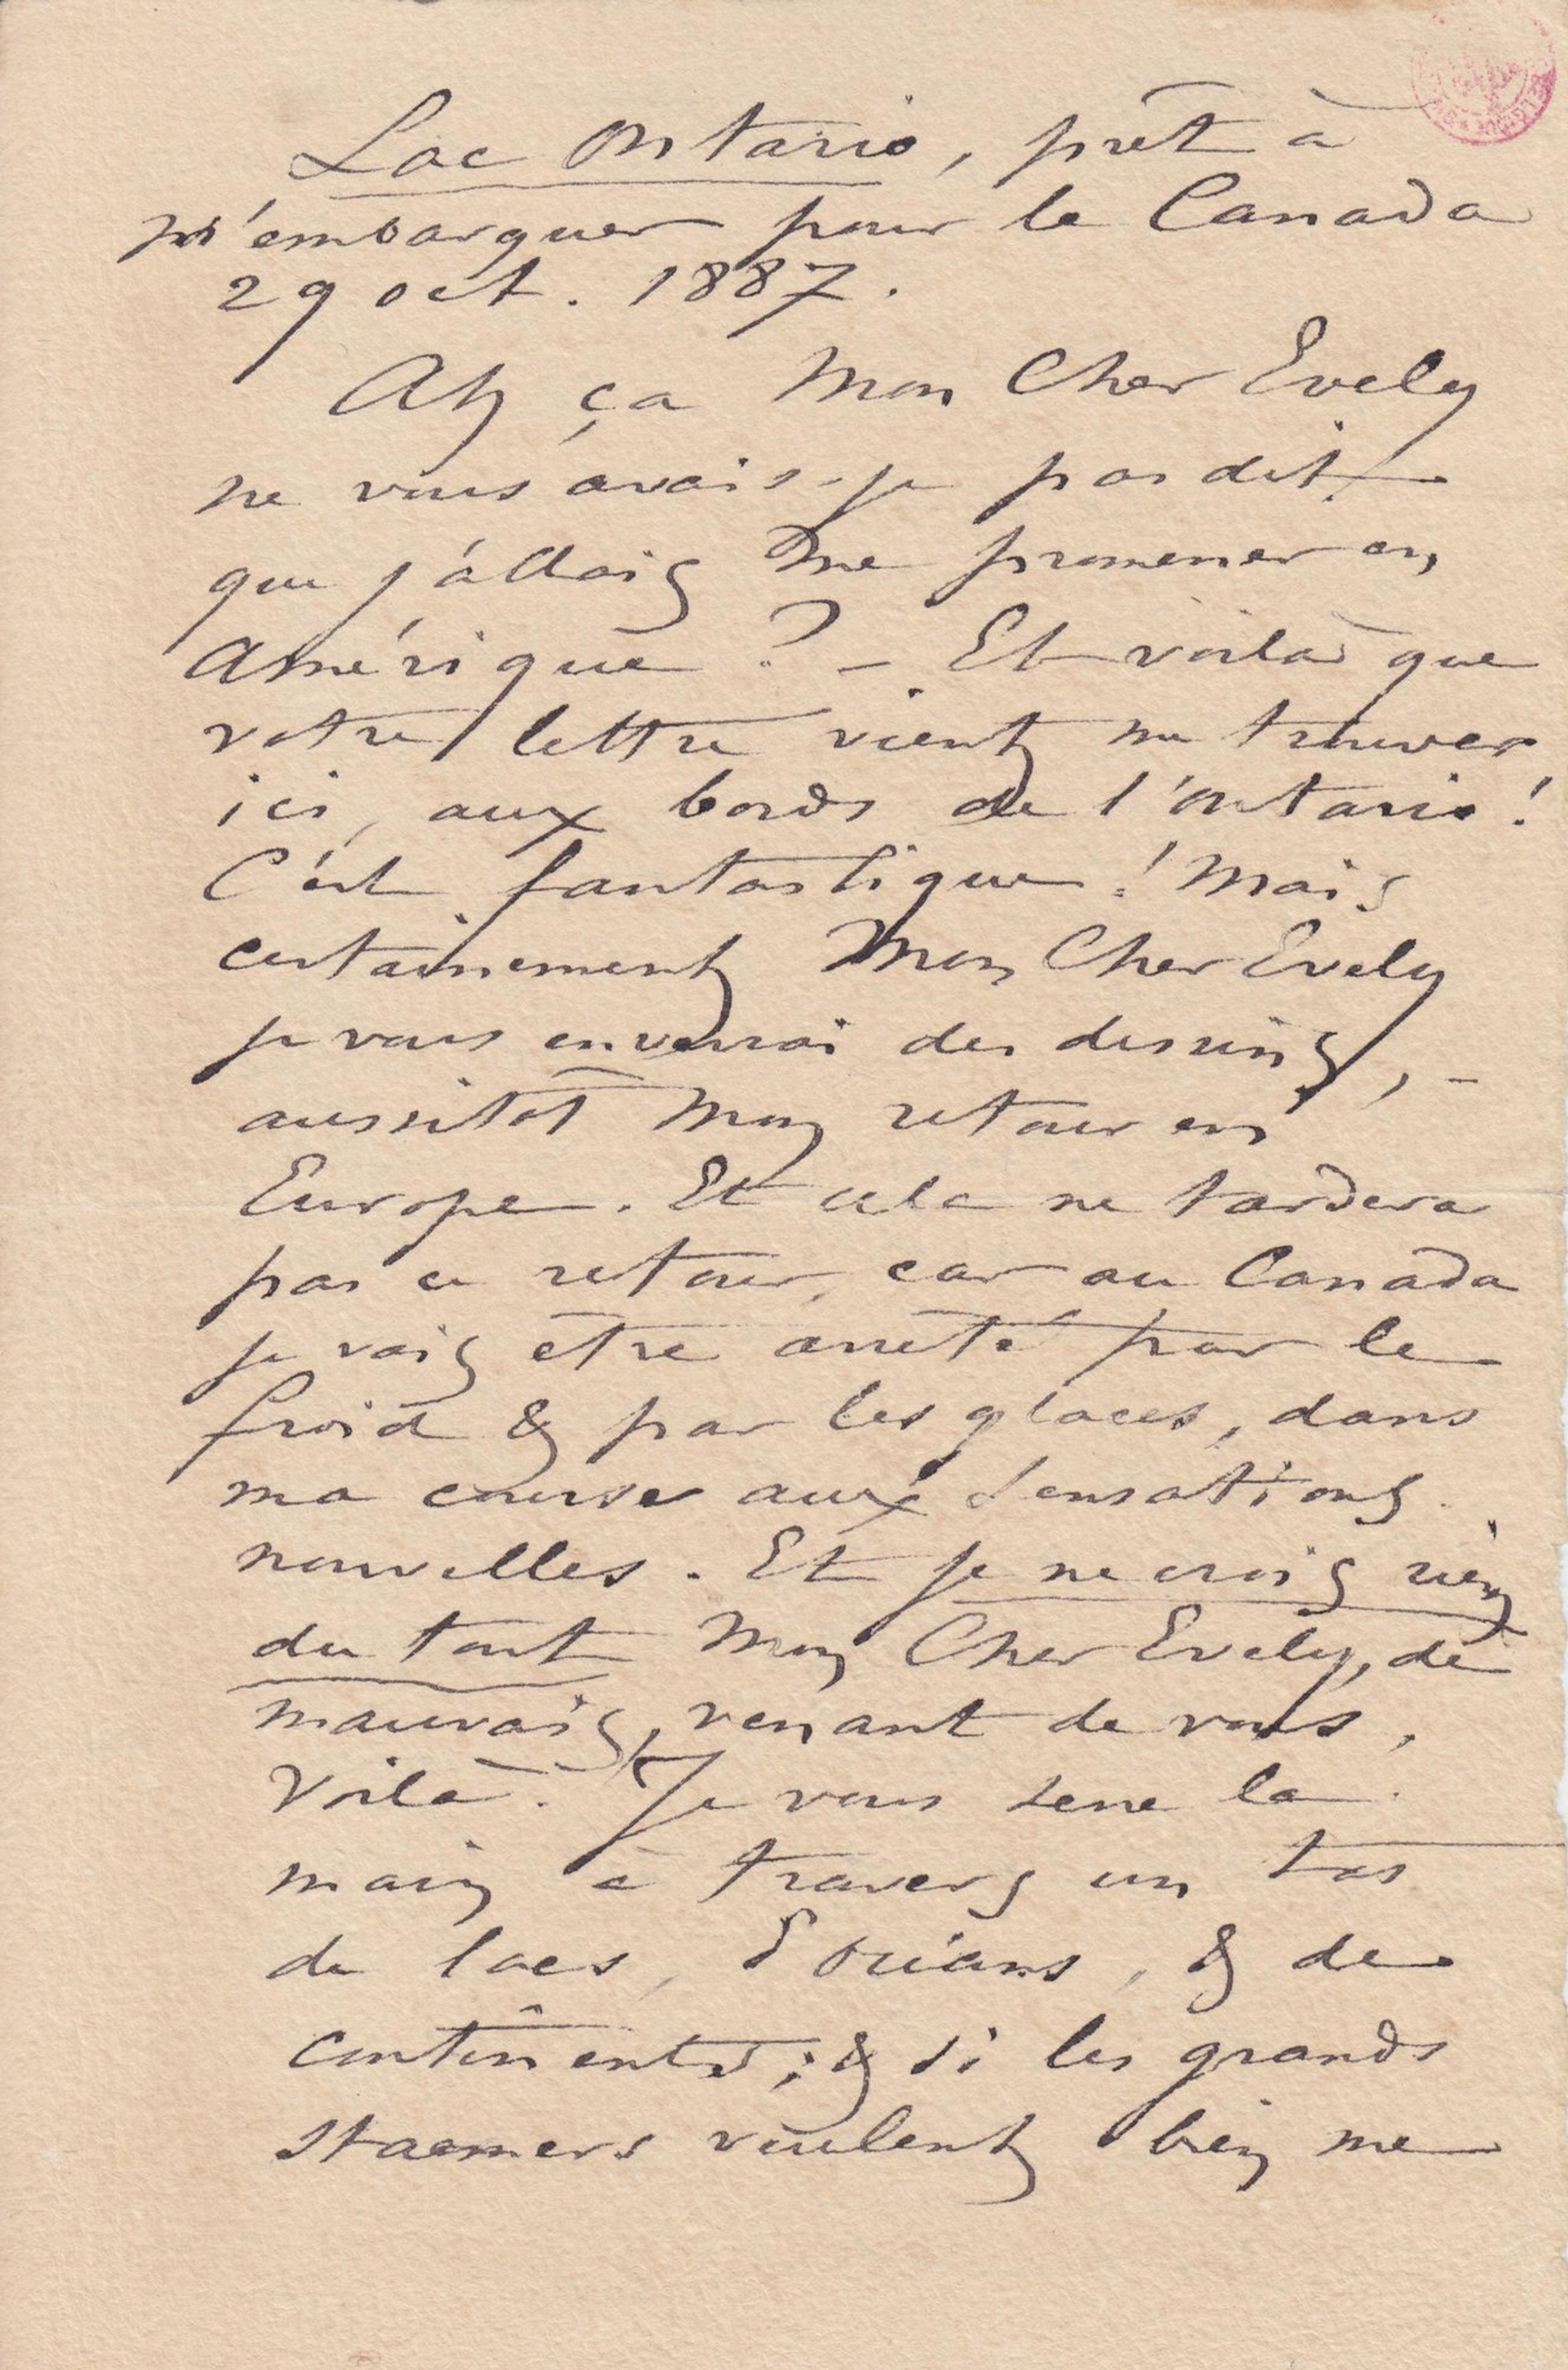 Lac Ontario, prêt à
m'embarquer pour le Canada
29 oct. 1887.
Ah ça Mon Cher Evely
ne vous avais-je pas dit
que j'allais me promener en
Amérique ? – Et voilà que
votre lettre vient me trouver
ici, aux bords de l'Ontario !
C'est fantastique ! Mais
certainement Mon Cher Evely
je vous enverrai des dessins, –
aussitôt mon retour en
Europe. Et cela ne tardera
pas ce retour, car au Canada
je vais être arrêté par le
froid & par les glaces, dans
ma course aux sensations
nouvelles. Et je ne crois rien
du tout Mon Cher Evely, de
mauvais, venant de vous,
Voilà. Je vous serre la
main à travers un tas
de lacs, d'océans, & de
continents ; & si les grands
staemers veulent bien me